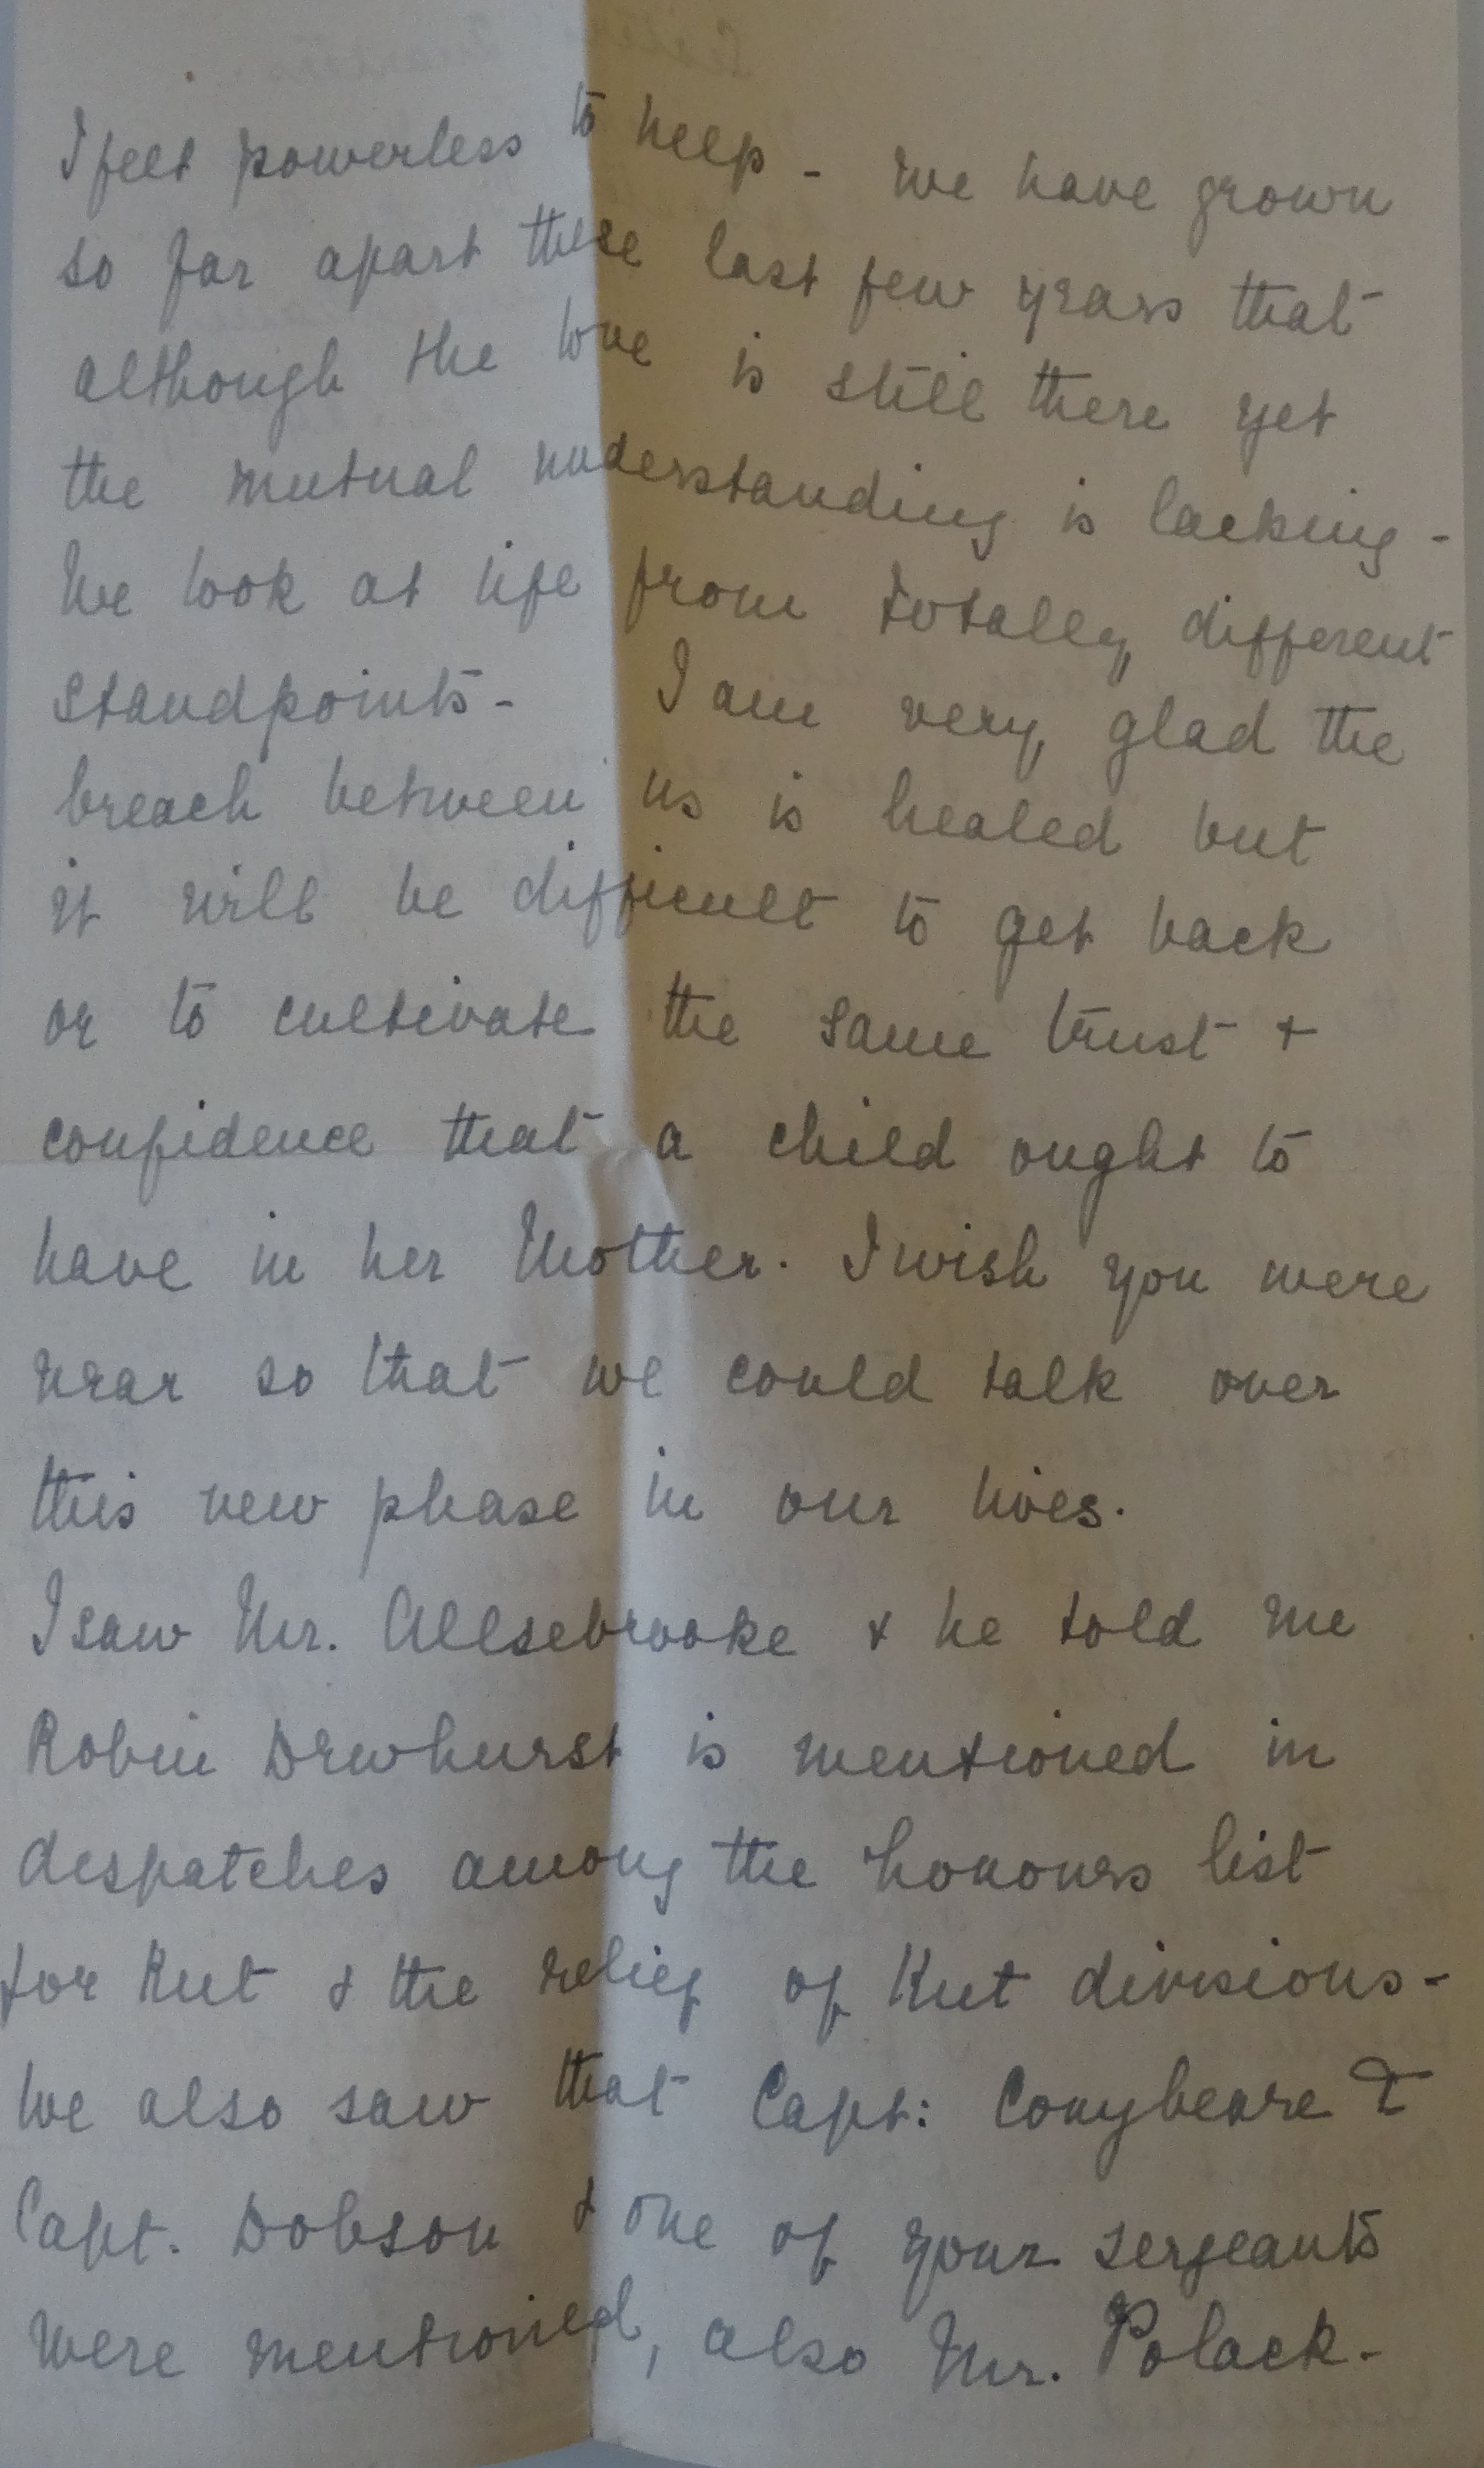 I feel powerless to help - We have grown
so far apart these last few years that
although the love is still there yet
the mutual understanding is lacking -
We look at life from totally different
standpoints - I am very glad the
breach between us is healed but
it will be difficult to get back
or to cultivate the same trust +
confidence that a child ought to
have in her Mother. I wish you were
near so that we could talk over
this new phase in our lives.
I saw Mr. Allsebrooke + he told me
Robin Dewhurst is mentioned in
despatches among the honours list
for Kut & the relief of Kut divisions -
We also saw that Capt: Conybeare &
Capt. Dobson & one of your sergeants
were mentioned, also Mr. Polack -